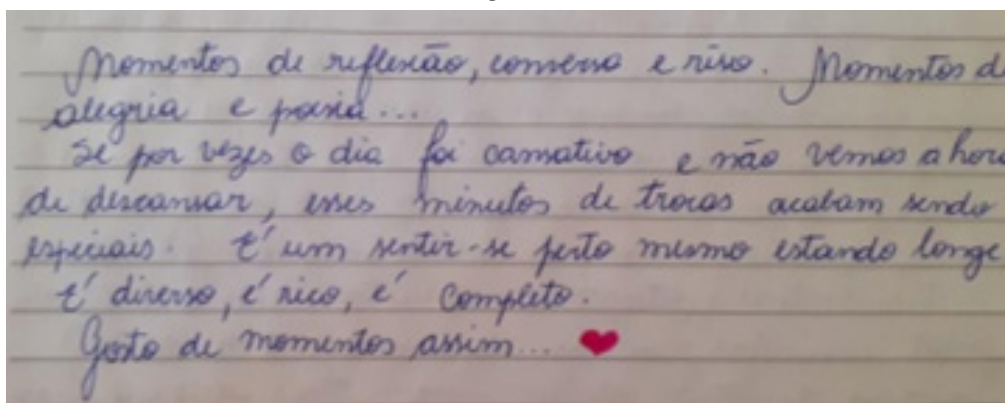 Momentos de reflexão, conversa e riso. Momentos d
alegria e poesia...
Se por vezes o dia foi cansativo e não vemos a hora
de descansar, esses minutos de trocas acabam sendo
especiais. É um sentir-se perto mesmo estando longe
É diverso, é rico, é completo.
Gosto de momentos assim... ❤